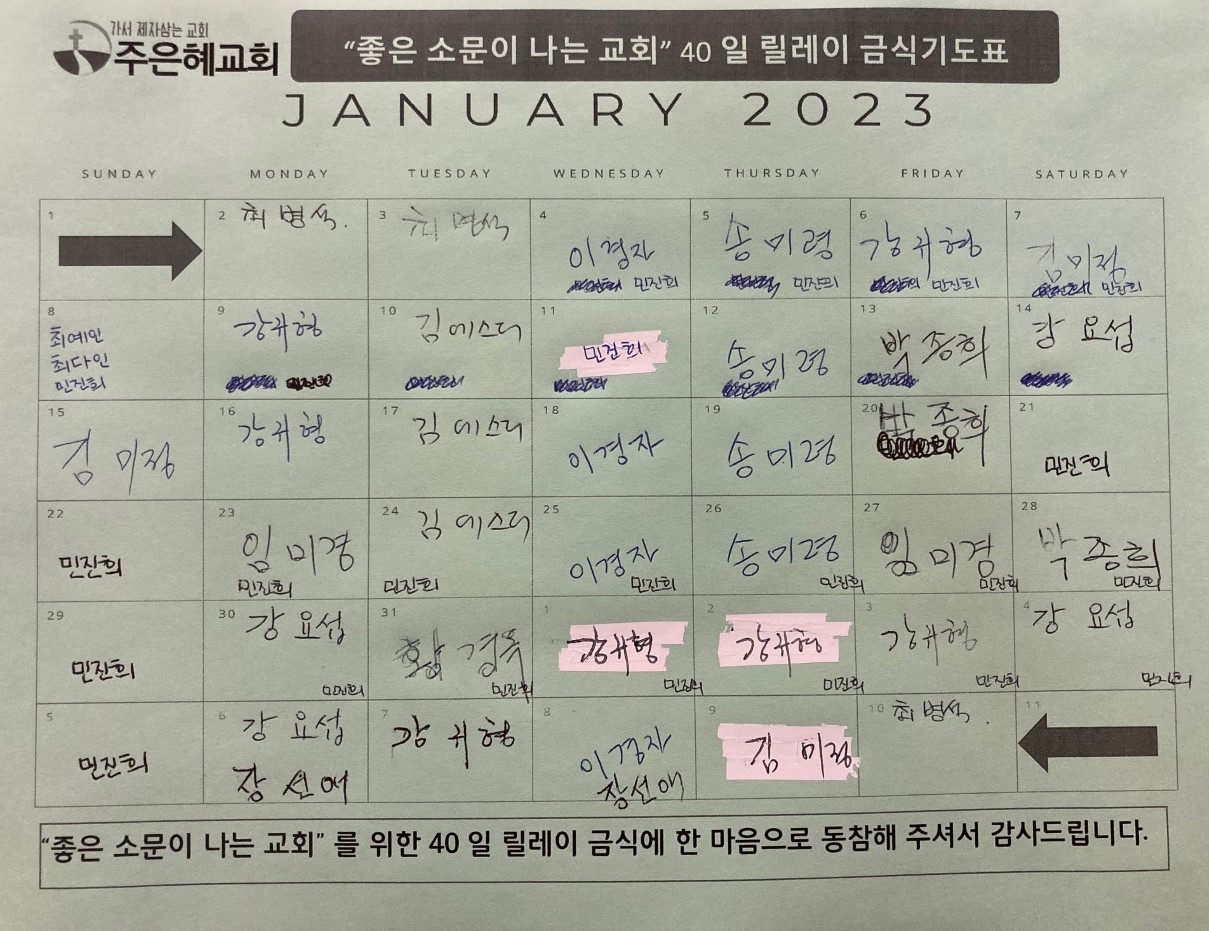 가서 제자삼는 교회
주은혜교회
“좋은 소문이 나는 교회” 40 일 릴레이 금식기도표
JANUARY 2023
SUNDAY MONDAY TUESDAY WEDNESDAY THURSDAY FRIDAY SATURDAY
1
2 최병석.
3 최병석
4
이경자
민진희
5
송미령
민진희
6
강귀형
민진희
7
김미정
민진희
8
최예인
최다인
민진희
9
강귀형
민진희
10 김에스더
11
민진희
12
송미령
13
박종희
14
강요섭
15
김미정
16
강귀형
17 김에스더
18
이경자
19
송미령
20 박종희
21
민진희
22
민진희
23
임미경
민진희
24 김에스더
민진희
25
이경자
민진희
26
송미령
민진희
27
임미경
민진희
28
박종희
민진희
29
민진희
30 강요섭
민진희
31
황경옥
민진희
1
강귀형
민진희
2
강귀형
민진희
3
강귀형
민진희
4 강요섭
민진희
5
민진희
6 강요섭
장선애
7
강귀형
8
이경자
장선애
9
김미정
10 최병석.
11
“좋은 소문이 나는 교회” 를 위한 40 일 릴레이 금식에 한 마음으로 동참해 주셔서 감사드립니다.